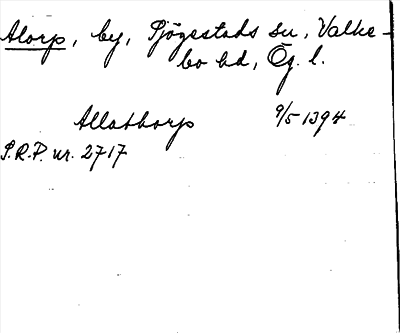 Alorp, by, Sjögestads sn, Valke-
bo hd, Ög. l.
Allathorp 9/5 1394
S.R.P. nr. 2717